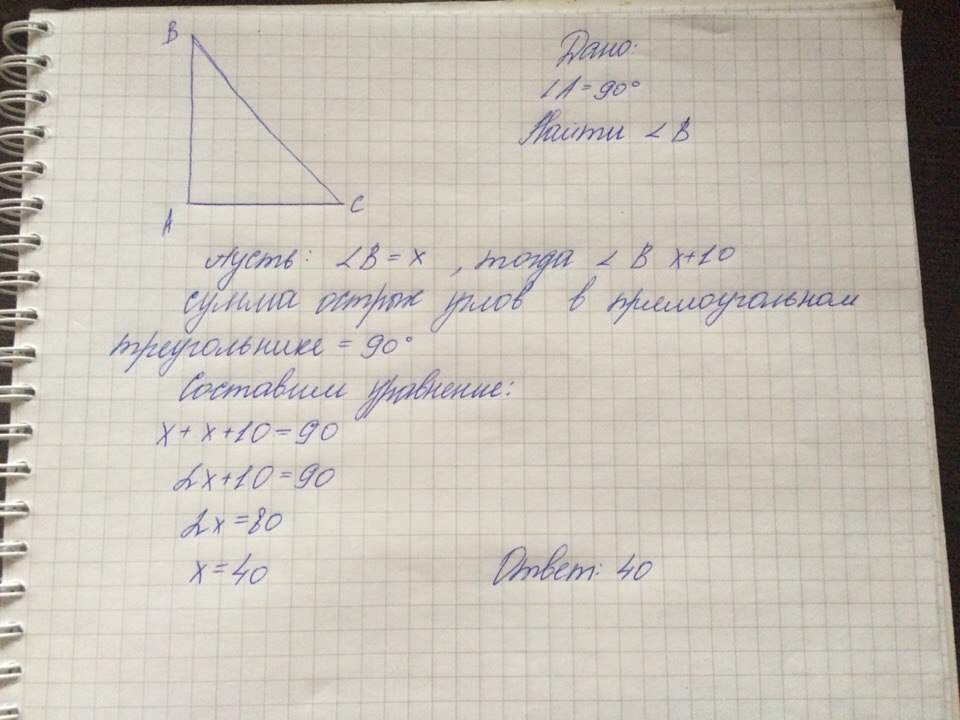 B
A
C
Дано:
∠A=90°
Найти ∠B
Пусть: ∠B = x , тогда ∠ B x+10
сумма острых углов в прямоугольном
треугольнике = 90°
Составим уравнение:
x+x+10=90
2x+10=90
2x=80
x=40
Ответ: 40